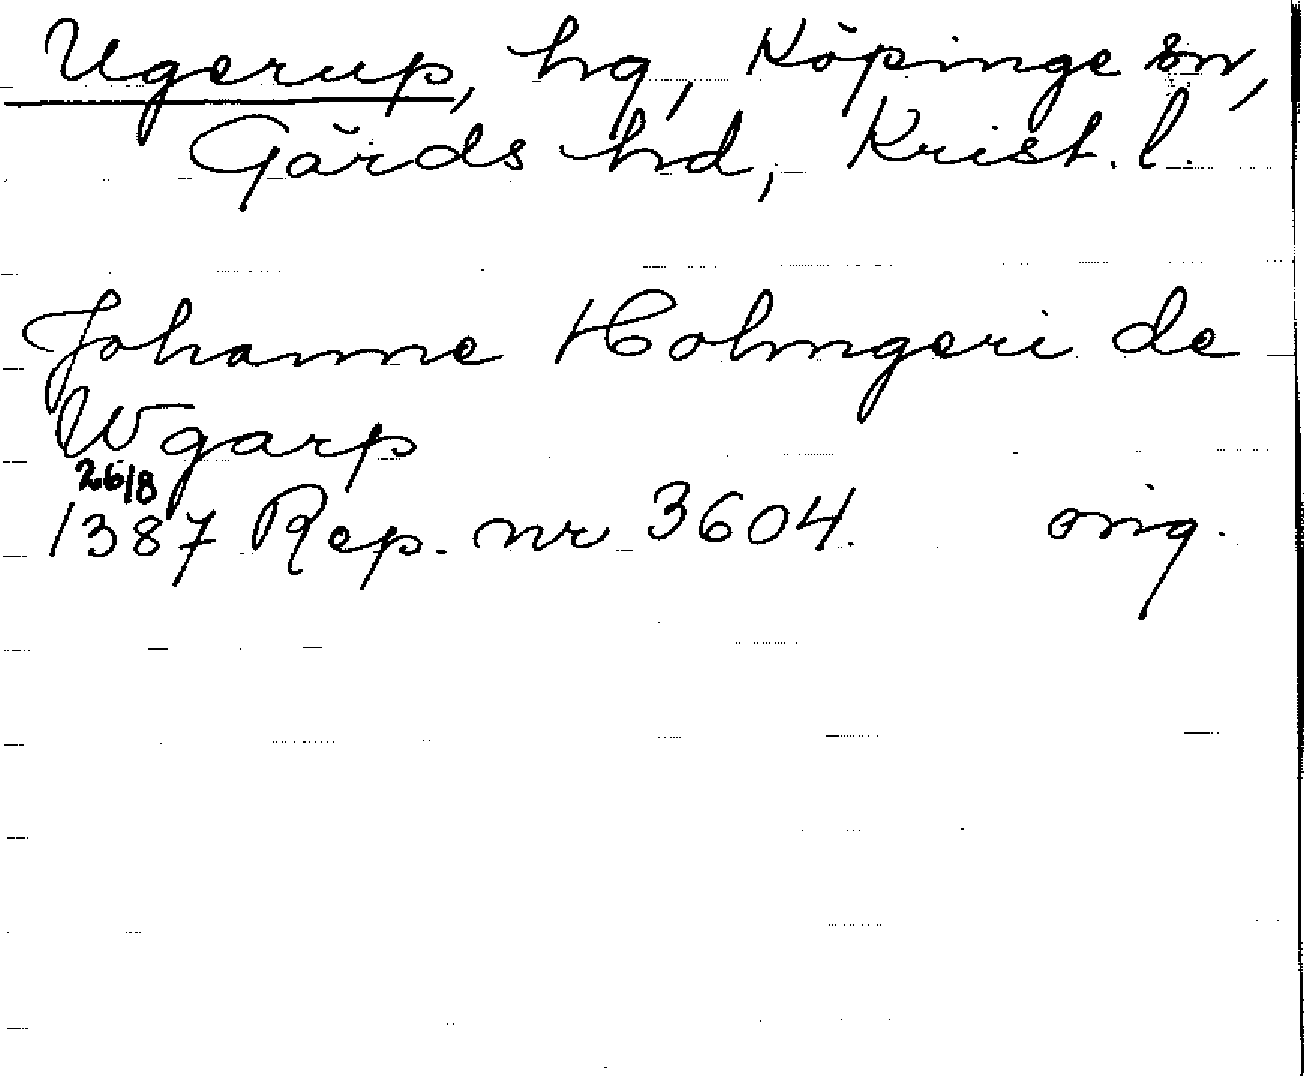 Ugerup, hg, Köpinge sn,
Gärds hd, Krist. l.
Johanne Holmgeri de
Wgarp
26/8
1387 Rep. nr 3604. orig.